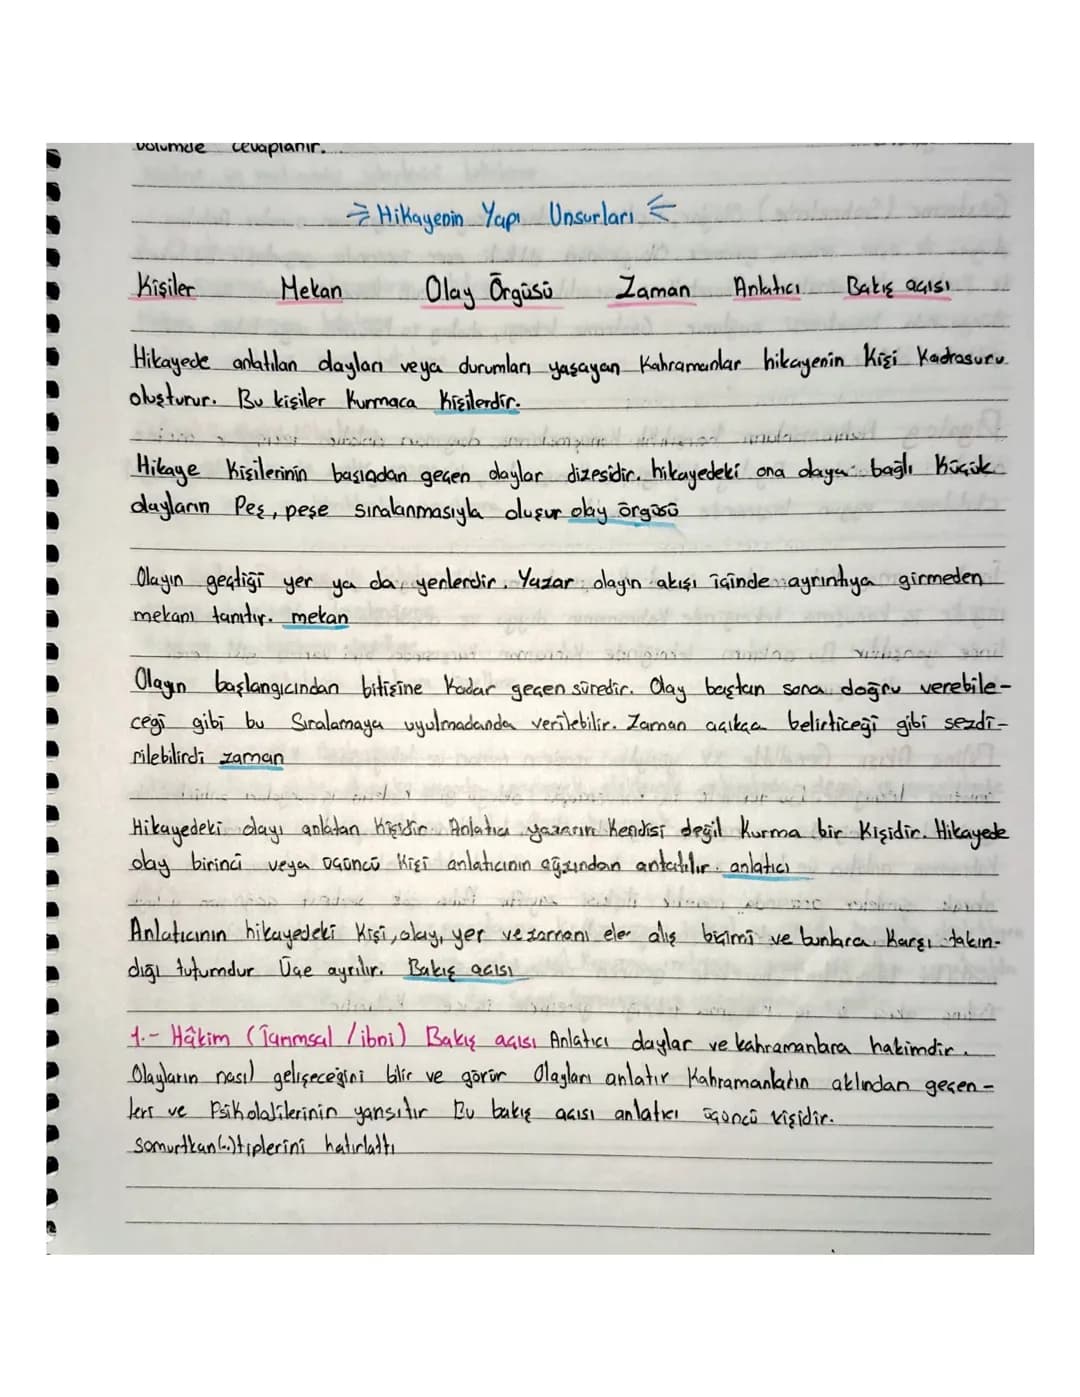 bölümde cevaplanır.
Hikayenin Yapı Unsurları
Kişiler Mekan Olay Örgüsü Zaman Anlatıcı Bakış açısı
Hikayede anlatılan olayları veya durumları yaşayan Kahramanlar hikayenin Kişi Kadrosunu
oluşturur. Bu kişiler Kurmaca Kişilerdir.
Hikaye Kişilerinin başından geçen olaylar dizesidir. hikayedeki ana olaya bağlı Küçük
olayların Peş, peşe sıralanmasıyla oluşur olay örgüsü
Olayın geçtiği yer ya da yerlerdir. Yazar olayın akışı içinde ayrıntıya girmeden
mekanı tanıtır. mekan
Olayın başlangıcından bitişine Kadar geçen süredir. Olay baştan sona doğru verebile-
ceği gibi bu Sıralamaya uyulmadanda verilebilir. Zaman açıkça belirticeği gibi sezdi-
rilebilirdi zaman
Hikayedeki olayı anlatan Kişidir. Anlatıcı yazarın Kendisi değil Kurma bir Kişidir. Hikayede
olay birinci veya üçüncü Kişi anlatıcının ağzından anlatılır. anlatıcı
Anlatıcının hikayedeki Kişi, olay, yer ve zamanı ele alış biçimi ve bunlara Karşı takın-
dığı tutumdur Üçe ayrılır. Bakış açısı
1.- Hâkim (Tanrısal / ibni) Bakış açısı Anlatıcı olaylar ve kahramanlara hakimdir.
Olayların nasıl gelişeceğini bilir ve görür Olayları anlatır Kahramanların aklından geçen-
leri ve Psikolojilerinin yansıtır Bu bakış açısı anlatıcı üçüncü kişidir.
somurtkan(..)tiplerini hatırlattı